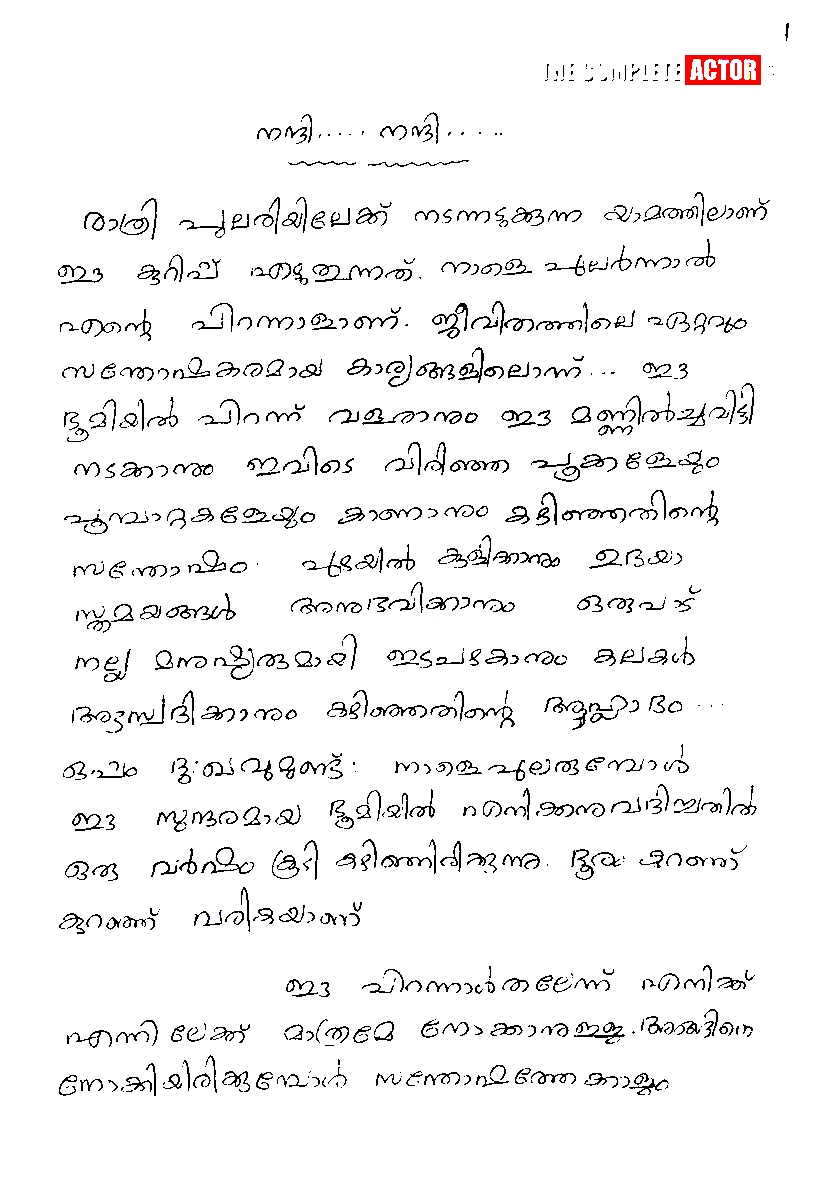 1
THE COMPLETE ACTOR
നന്ദി..... നന്ദി.....
രാത്രി പുലരിയിലേക്ക് നടന്നടുക്കുന്ന യാമത്തിലാണ്
ഈ കുറിപ്പ് എഴുതുന്നത്. നാളെ പുലർന്നാൽ
എന്റെ പിറന്നാളാണ്. ജീവിതത്തിലെ ഏറ്റവും
സന്തോഷകരമായ കാര്യങ്ങളിലൊന്ന്... ഈ
ഭൂമിയിൽ പിറന്ന് വളരാനും ഈ മണ്ണിൽച്ചവിട്ടി
നടക്കാനും ഇവിടെ വിരിഞ്ഞ പൂക്കളേയും
പൂമ്പാറ്റകളേയും കാണാനും കഴിഞ്ഞതിന്റെ
സന്തോഷം. പുഴയിൽ കുളിക്കാനും ഉദയാ
സ്തമയങ്ങൾ അനുഭവിക്കാനും ഒരുപാട്
നല്ല മനുഷ്യരുമായി ഇടപഴകാനും കലകൾ
ആസ്വദിക്കാനും കഴിഞ്ഞതിന്റെ ആഹ്ലാദം...
ഒപ്പം ദു:ഖവുമുണ്ട്: നാളെപുലരുമ്പോൾ
ഈ സുന്ദരമായ ഭൂമിയിൽ എനിക്കനുവദിച്ചതിൽ
ഒരു വർഷം കൂടി കഴിഞ്ഞിരിക്കുന്നു. ദൂരം കുറഞ്ഞ്
കുറഞ്ഞ് വരികയാണ്
ഈ പിറന്നാൾതലേന്ന് എനിക്ക്
എന്നി ലേക്ക് മാത്രമേ നോക്കാനുള്ളൂ. അങ്ങിനെ
നോക്കിയിരിക്കുമ്പോൾ സന്തോഷത്തേക്കാളും